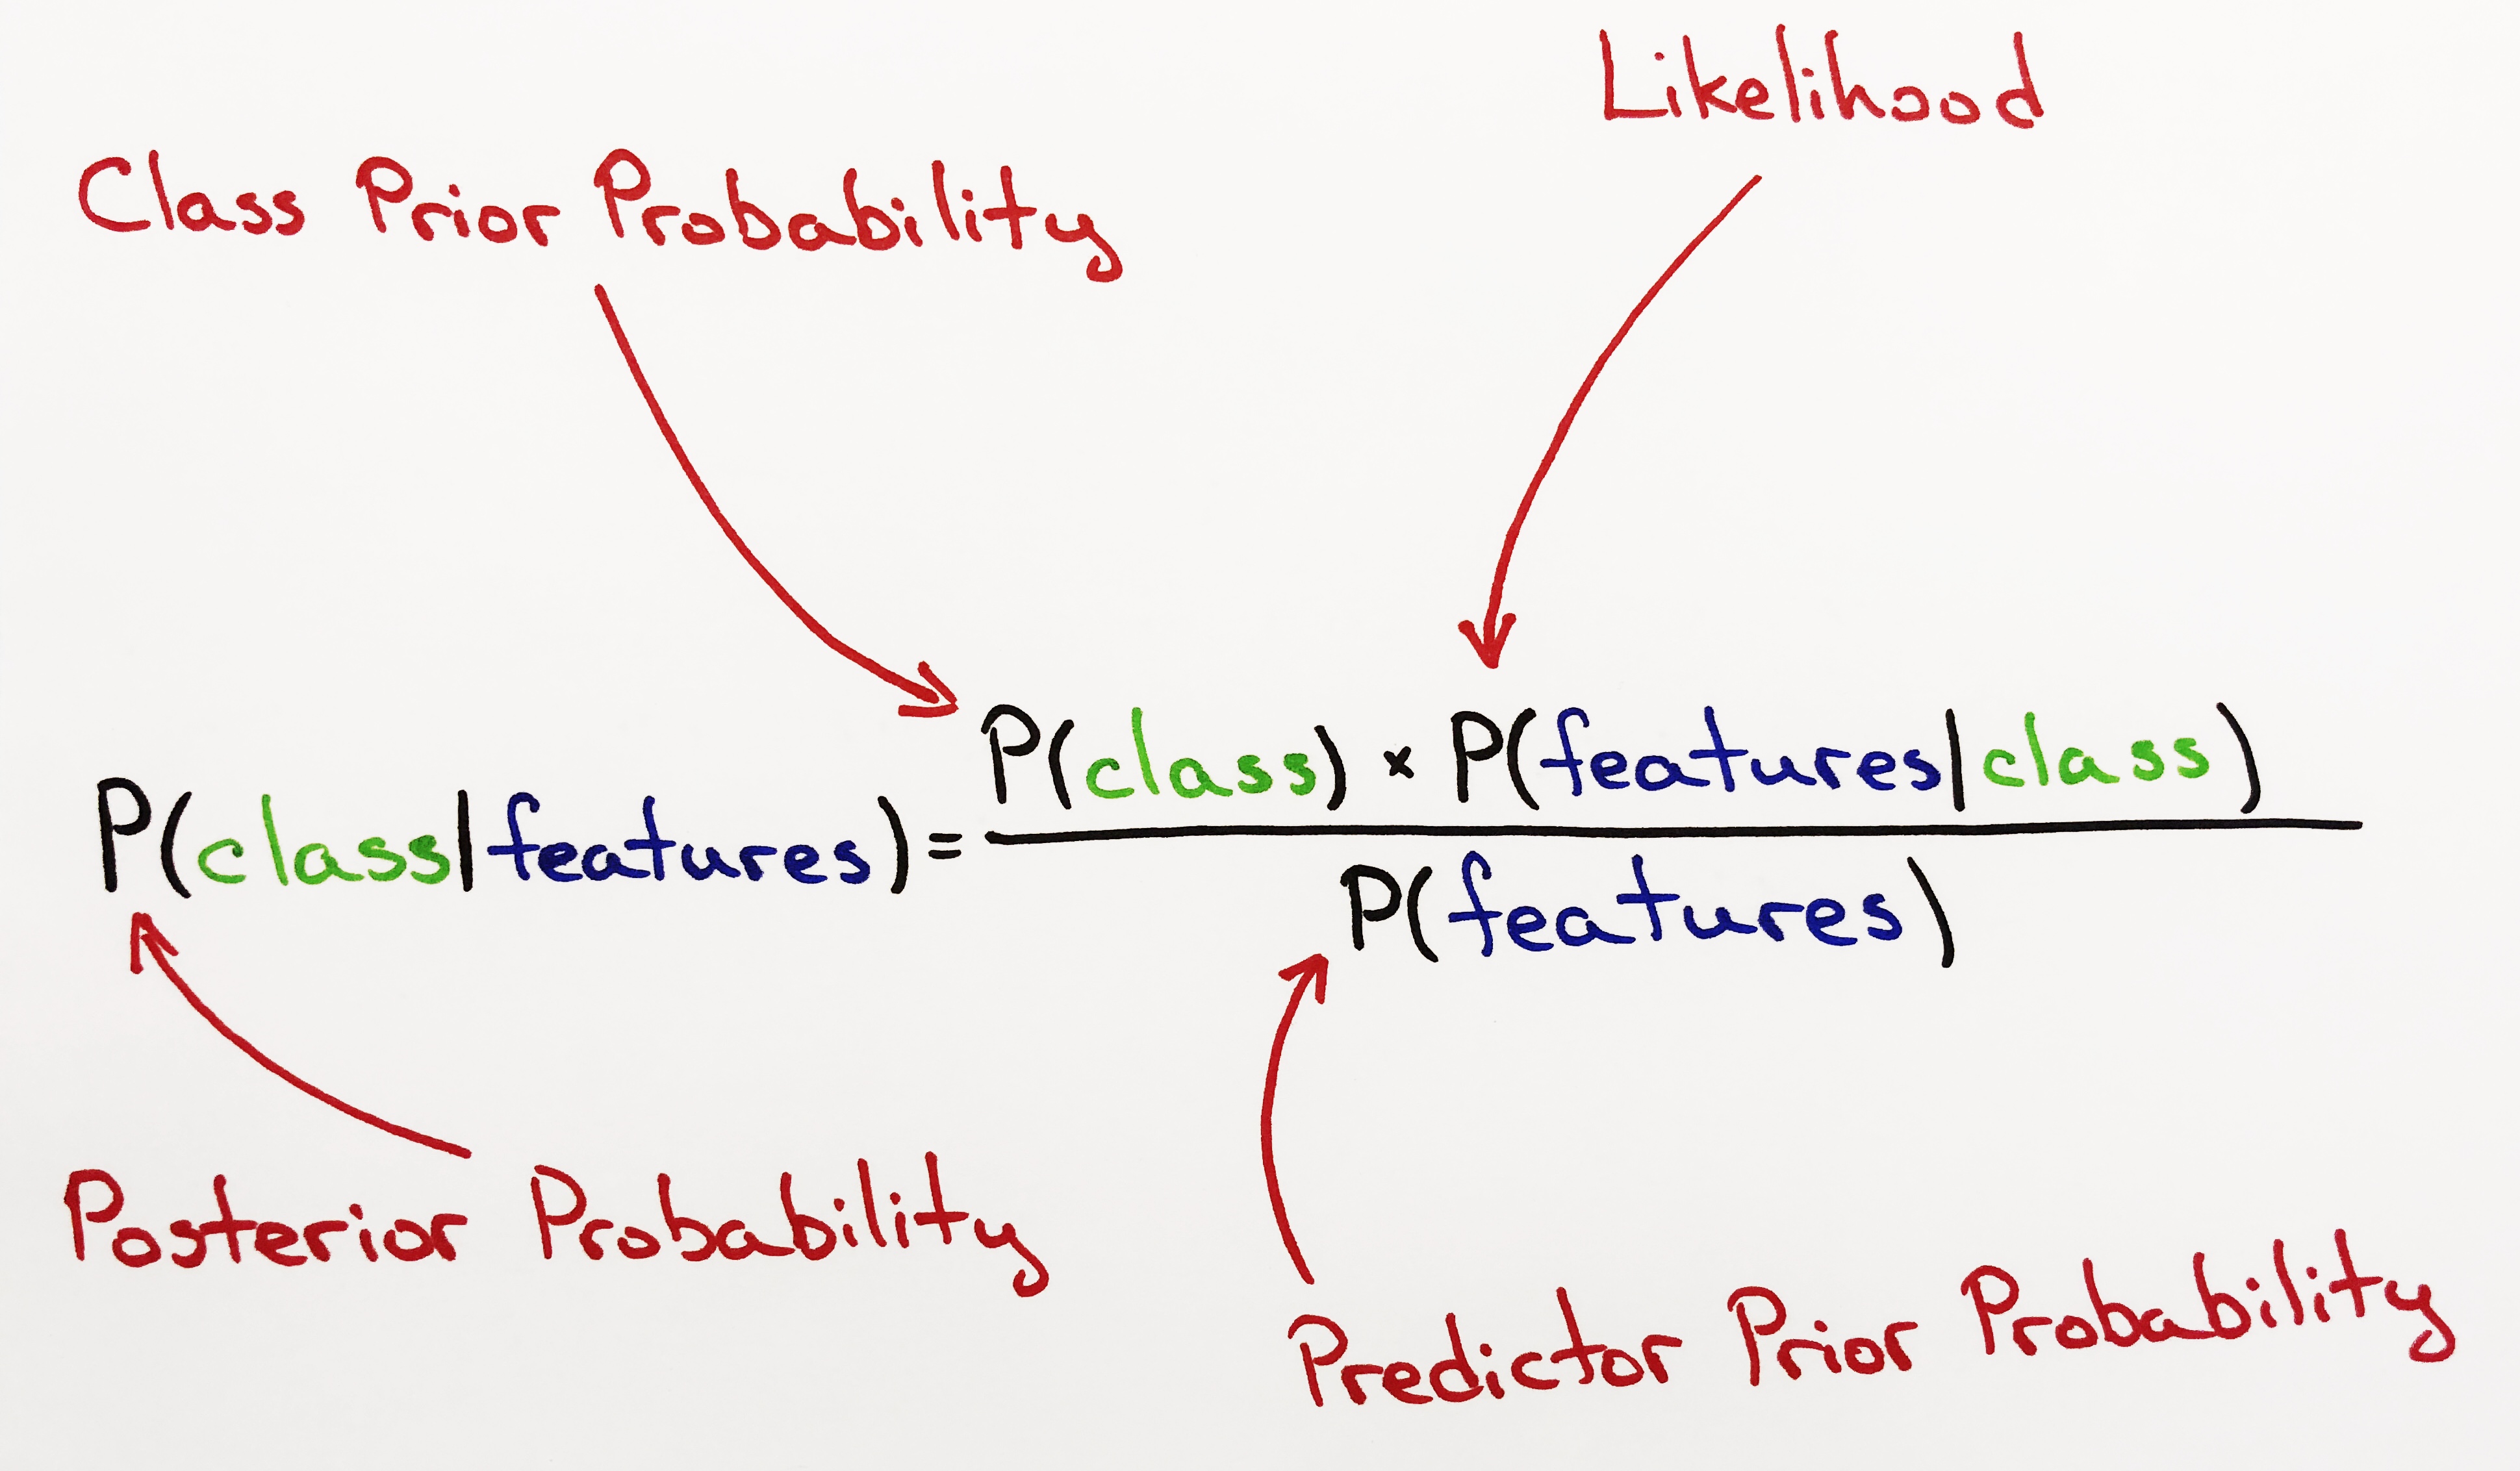 Likelihood
Class Prior Probability
P(class) × P(features|class)
P(class|features) =
P(features)
Posterior Probability
Predictor Prior Probability